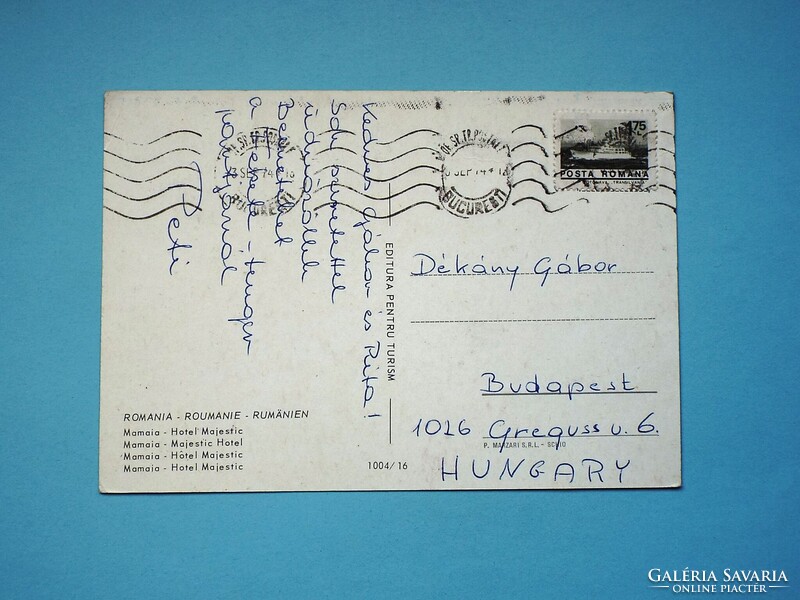 Kedves Gábor és Rita!
Sok szeretettel
üdvözöllek
Benneteket
a Fekete-tenger
partjáról
Peti
ROMANIA - ROUMANIE - RUMÄNIEN
Mamaia - Hotel Majestic
Mamaia - Majestic Hotel
Mamaia - Hôtel Majestic
Mamaia - Hotel Majestic
1004/16
EDITURA PENTRU TURISM
SEP 74
BUCUREȘTI
SEP 74
BUCUREȘTI
1,75
POSTA ROMANA
TRANSILVANIA
Dékány Gábor
Budapest
1026 Greguss u. 6.
P. MARZARI S.R.L. - SCHIO
HUNGARY
GALÉRIA SAVARIA
ONLINE PIACTÉR